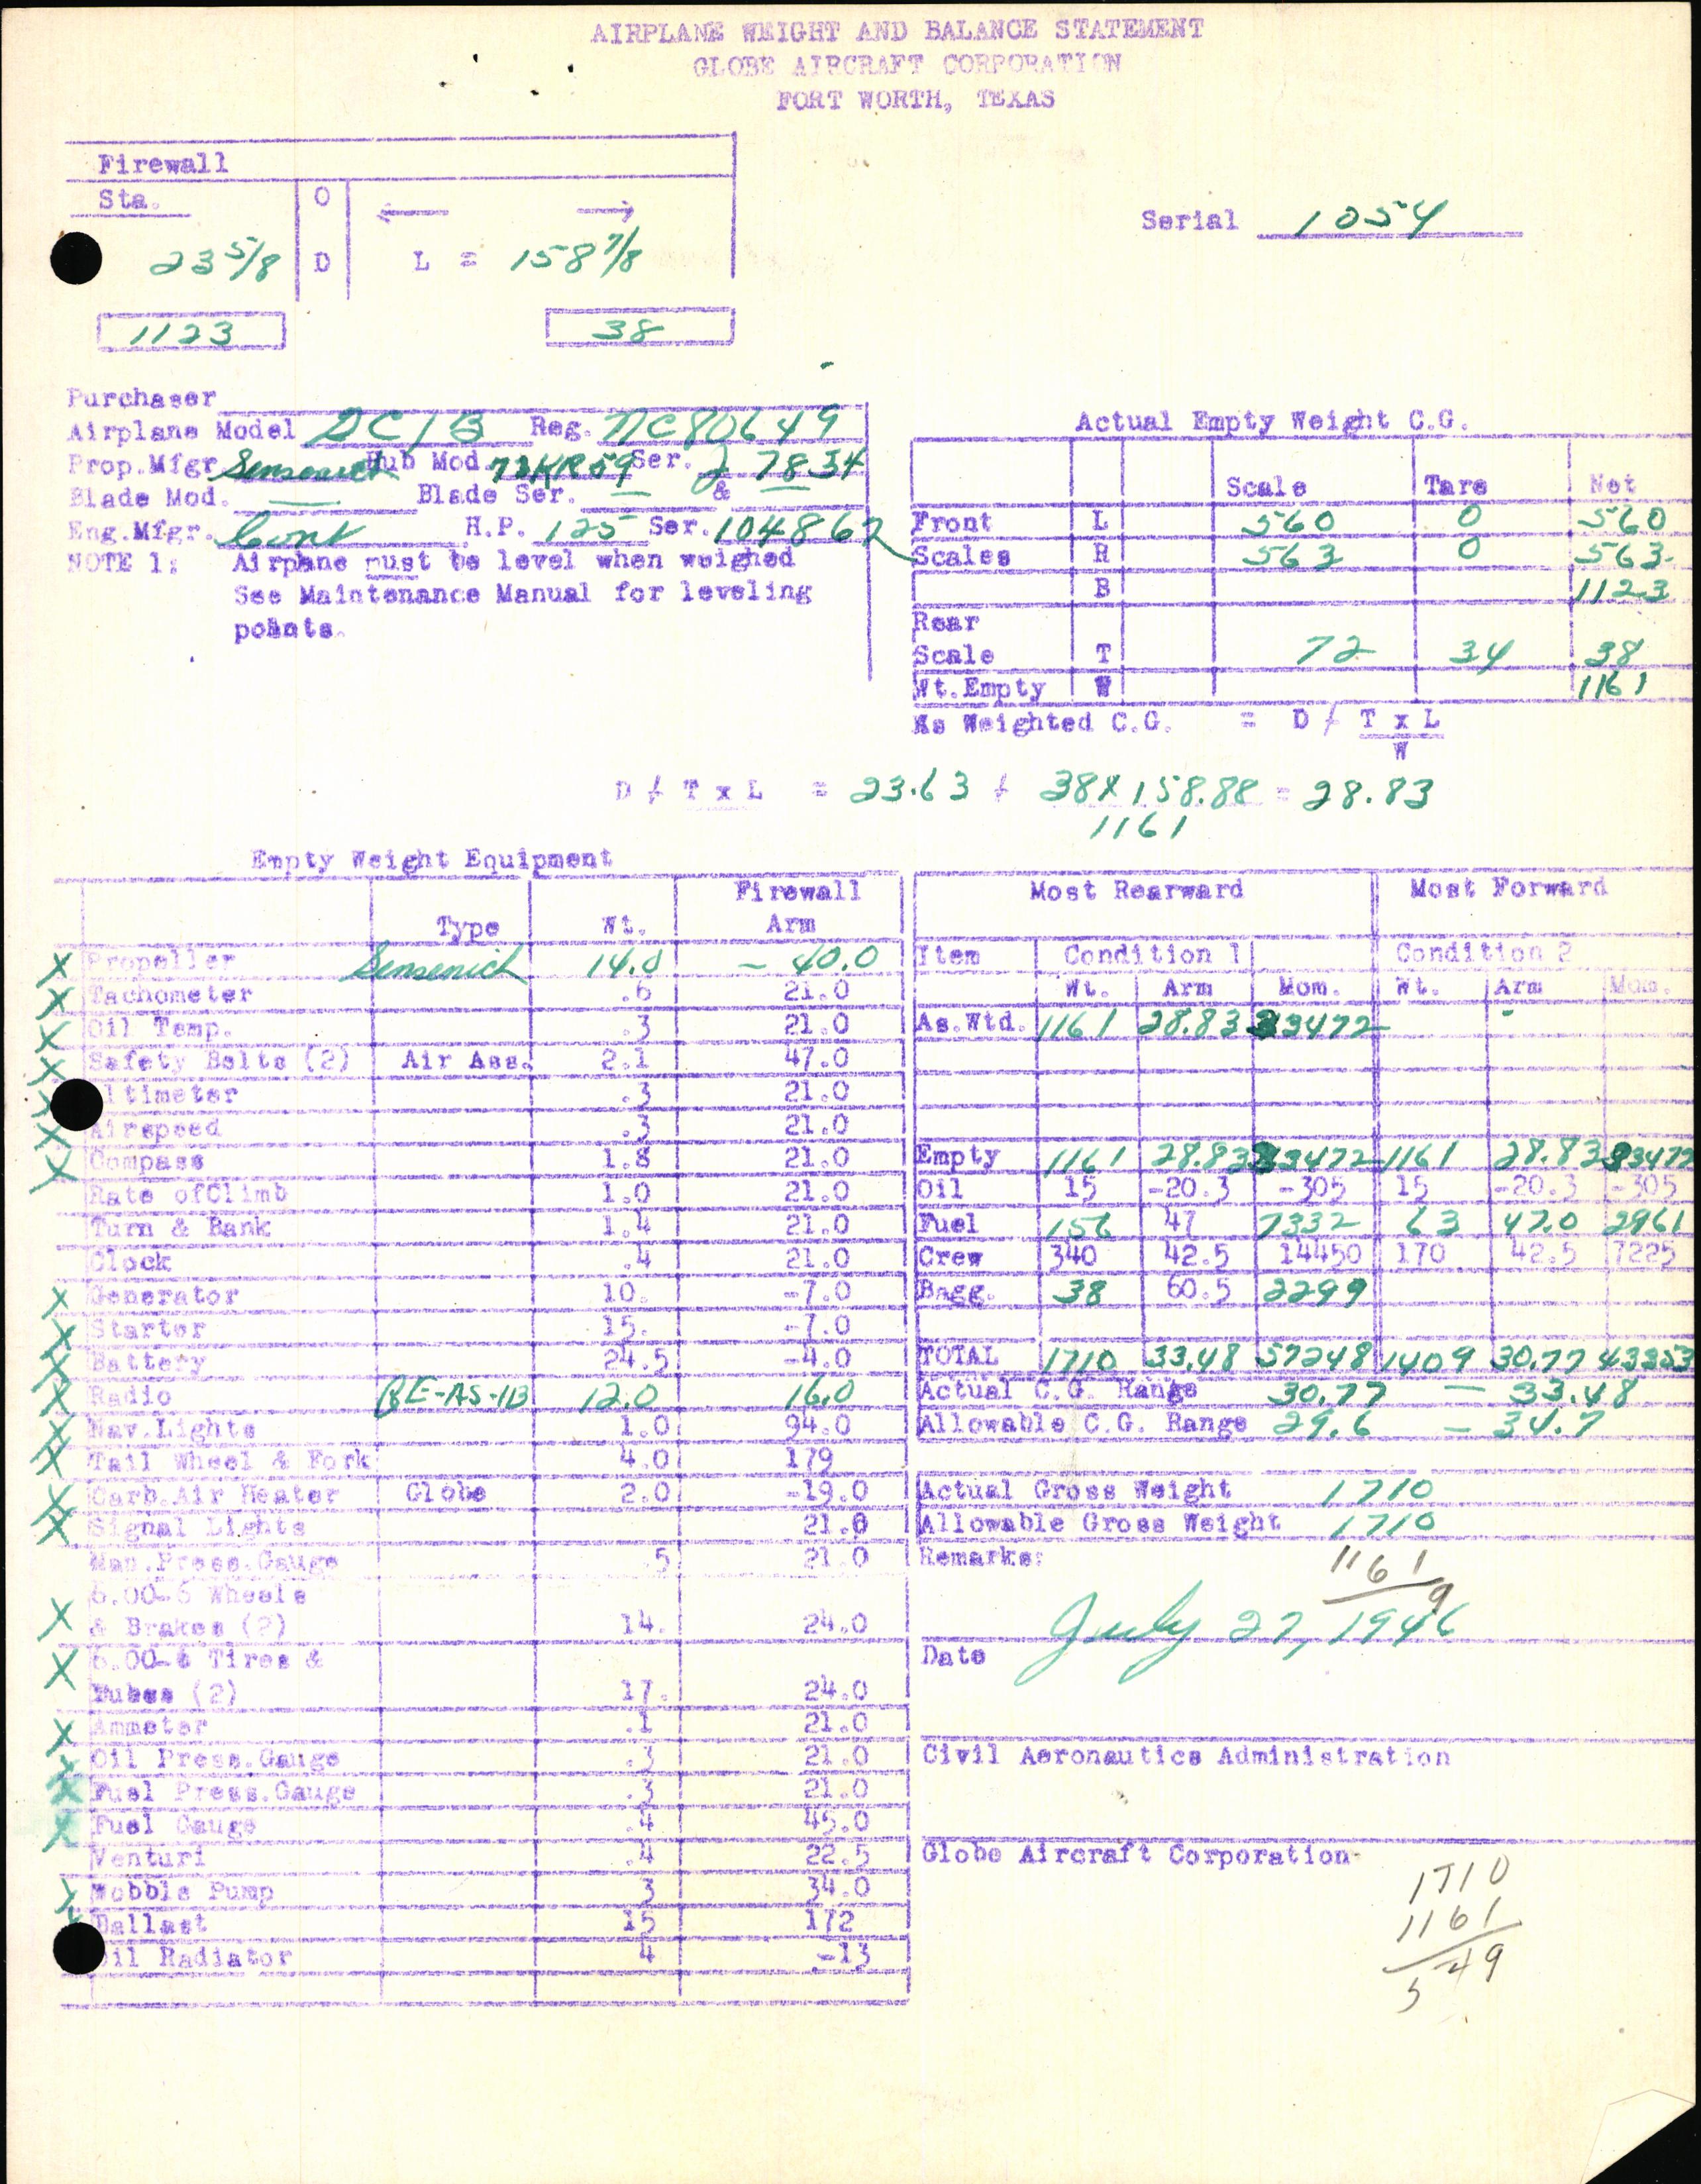 AIRPLANE WEIGHT AND BALANCE STATEMENT
GLOBE AIRCRAFT CORPORATION
FORT WORTH, TEXAS
Firewall
Sta. O ← →
23 5/8 D L = 158 7/8
1123 38
Serial 1054
Purchaser
Airplane Model GC1B Reg. NC80649
Prop.Mfgr. Sensenich Hub Mod. 73KR59 Ser. 27834
Blade Mod. — Blade Ser. — & —
Eng.Mfgr. Cont H.P. 125 Ser. 104862
NOTE 1: Airpane must be level when weighed
See Maintenance Manual for leveling
points.
Actual Empty Weight C.G.
Scale Tare Net
Front L 560 0 560
Scales R 563 0 563
B 1123
Rear
Scale T 72 34 38
Wt.Empty W 1161
As Weighted C.G. = D / T x L
W
D / T x L = 23.63 + 38X158.88 = 28.83
1161
Empty Weight Equipment
Type Wt. Firewall Arm
X Propeller Sensenich 14.0 - 40.0
X Tachometer .6 21.0
X Oil Temp. .3 21.0
X Safety Belts (2) Air Ass. 2.1 47.0
X ltimeter .3 21.0
X Airspeed .3 21.0
X Compass 1.8 21.0
Rate ofClimb 1.0 21.0
Turn & Bank 1.4 21.0
Clock .4 21.0
X Generator 10. -7.0
X Starter 15. -7.0
X Battery 24.5 -4.0
X Radio GE-AS-1B 12.0 16.0
X Nav.Lights 1.0 94.0
X Tail Wheel & Fork 4.0 179
X Carb.Air Heater Globe 2.0 -19.0
X Signal Lights 21.0
Man.Press.Gauge .5 21.0
6.00-6 Wheels
X & Brakes (2) 14. 24.0
X 6.00-6 Tires &
Tubes (2) 17. 24.0
X Ammeter .1 21.0
X Oil Press.Gauge .3 21.0
X Fuel Press.Gauge .3 21.0
X Fuel Gauge .4 45.0
Venturi .4 22.5
X Wobble Pump 3 34.0
X Ballast 15 172
il Radiator 4 -13
Most Rearward Most Forward
Item Condition 1 Condition 2
Wt. Arm Mom. Wt. Arm Mom.
As.Wtd. 1161 28.83 33472
Empty 1161 28.83 33472 1161 28.83 33472
Oil 15 -20.3 -305 15 -20.3 -305
Fuel 156 47 7332 63 47.0 2961
Crew 340 42.5 14450 170 42.5 7225
Bagg. 38 60.5 2299
TOTAL 1710 33.48 57248 1409 30.77 43353
Actual C.G. Range 30.77 - 33.48
Allowable C.G. Range 29.6 - 34.7
Actual Gross Weight 1710
Allowable Gross Weight 1710
Remarks: 1161
9
July 27, 1946
Date
Civil Aeronautics Administration
Globe Aircraft Corporation
1710
1161
549